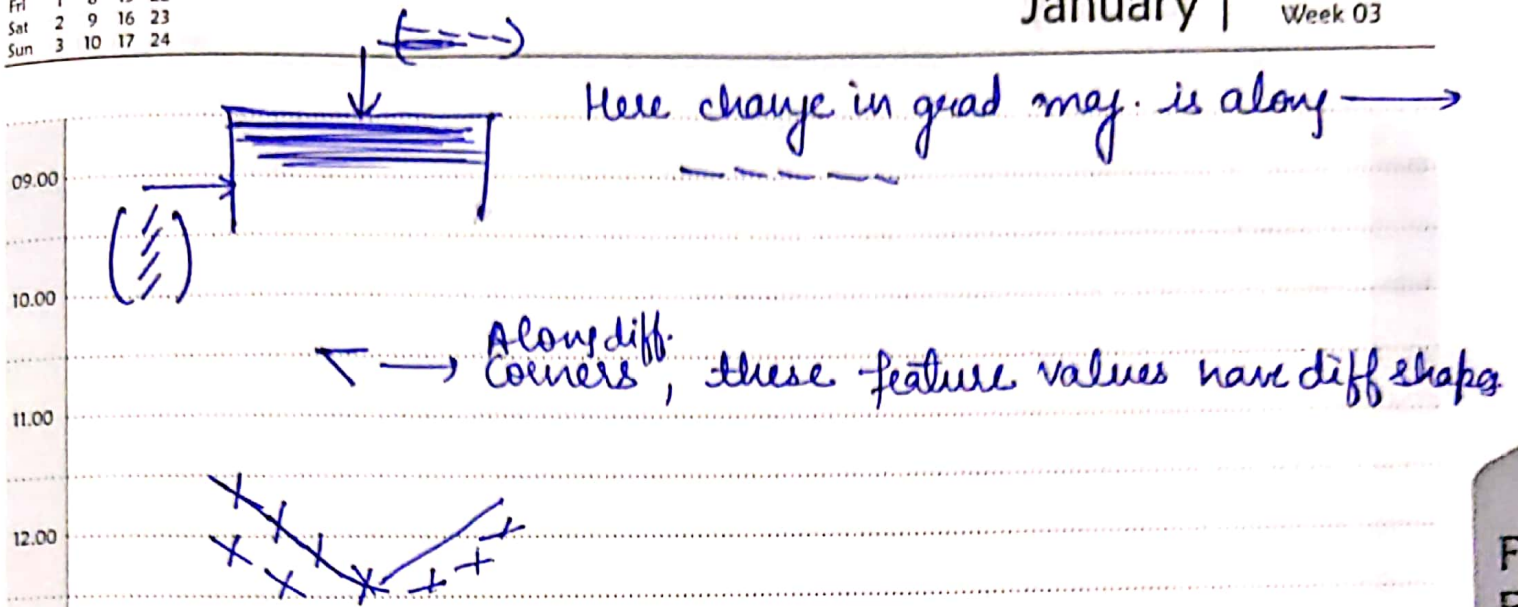 Fri 1 8
Sat 2 9 16 23
Sun 3 10 17 24
January
Week 03
Here change in grad mag. is along
09.00
10.00
Along diff.
Corners, these feature values have diff shapes
11.00
12.00